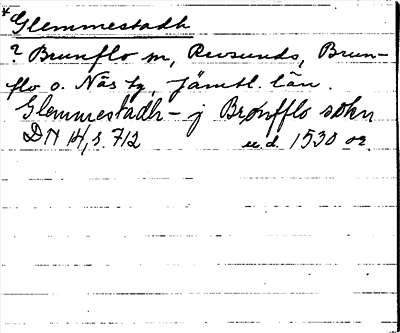 *Glemmestadh
? Brunflo sn, Revsunds, Brun-
flo o. Näs tg, Jämtl. län.
Glemmestadh - j Brønfflo sokn
DN 14, s. 712 u.d. 1530 or.